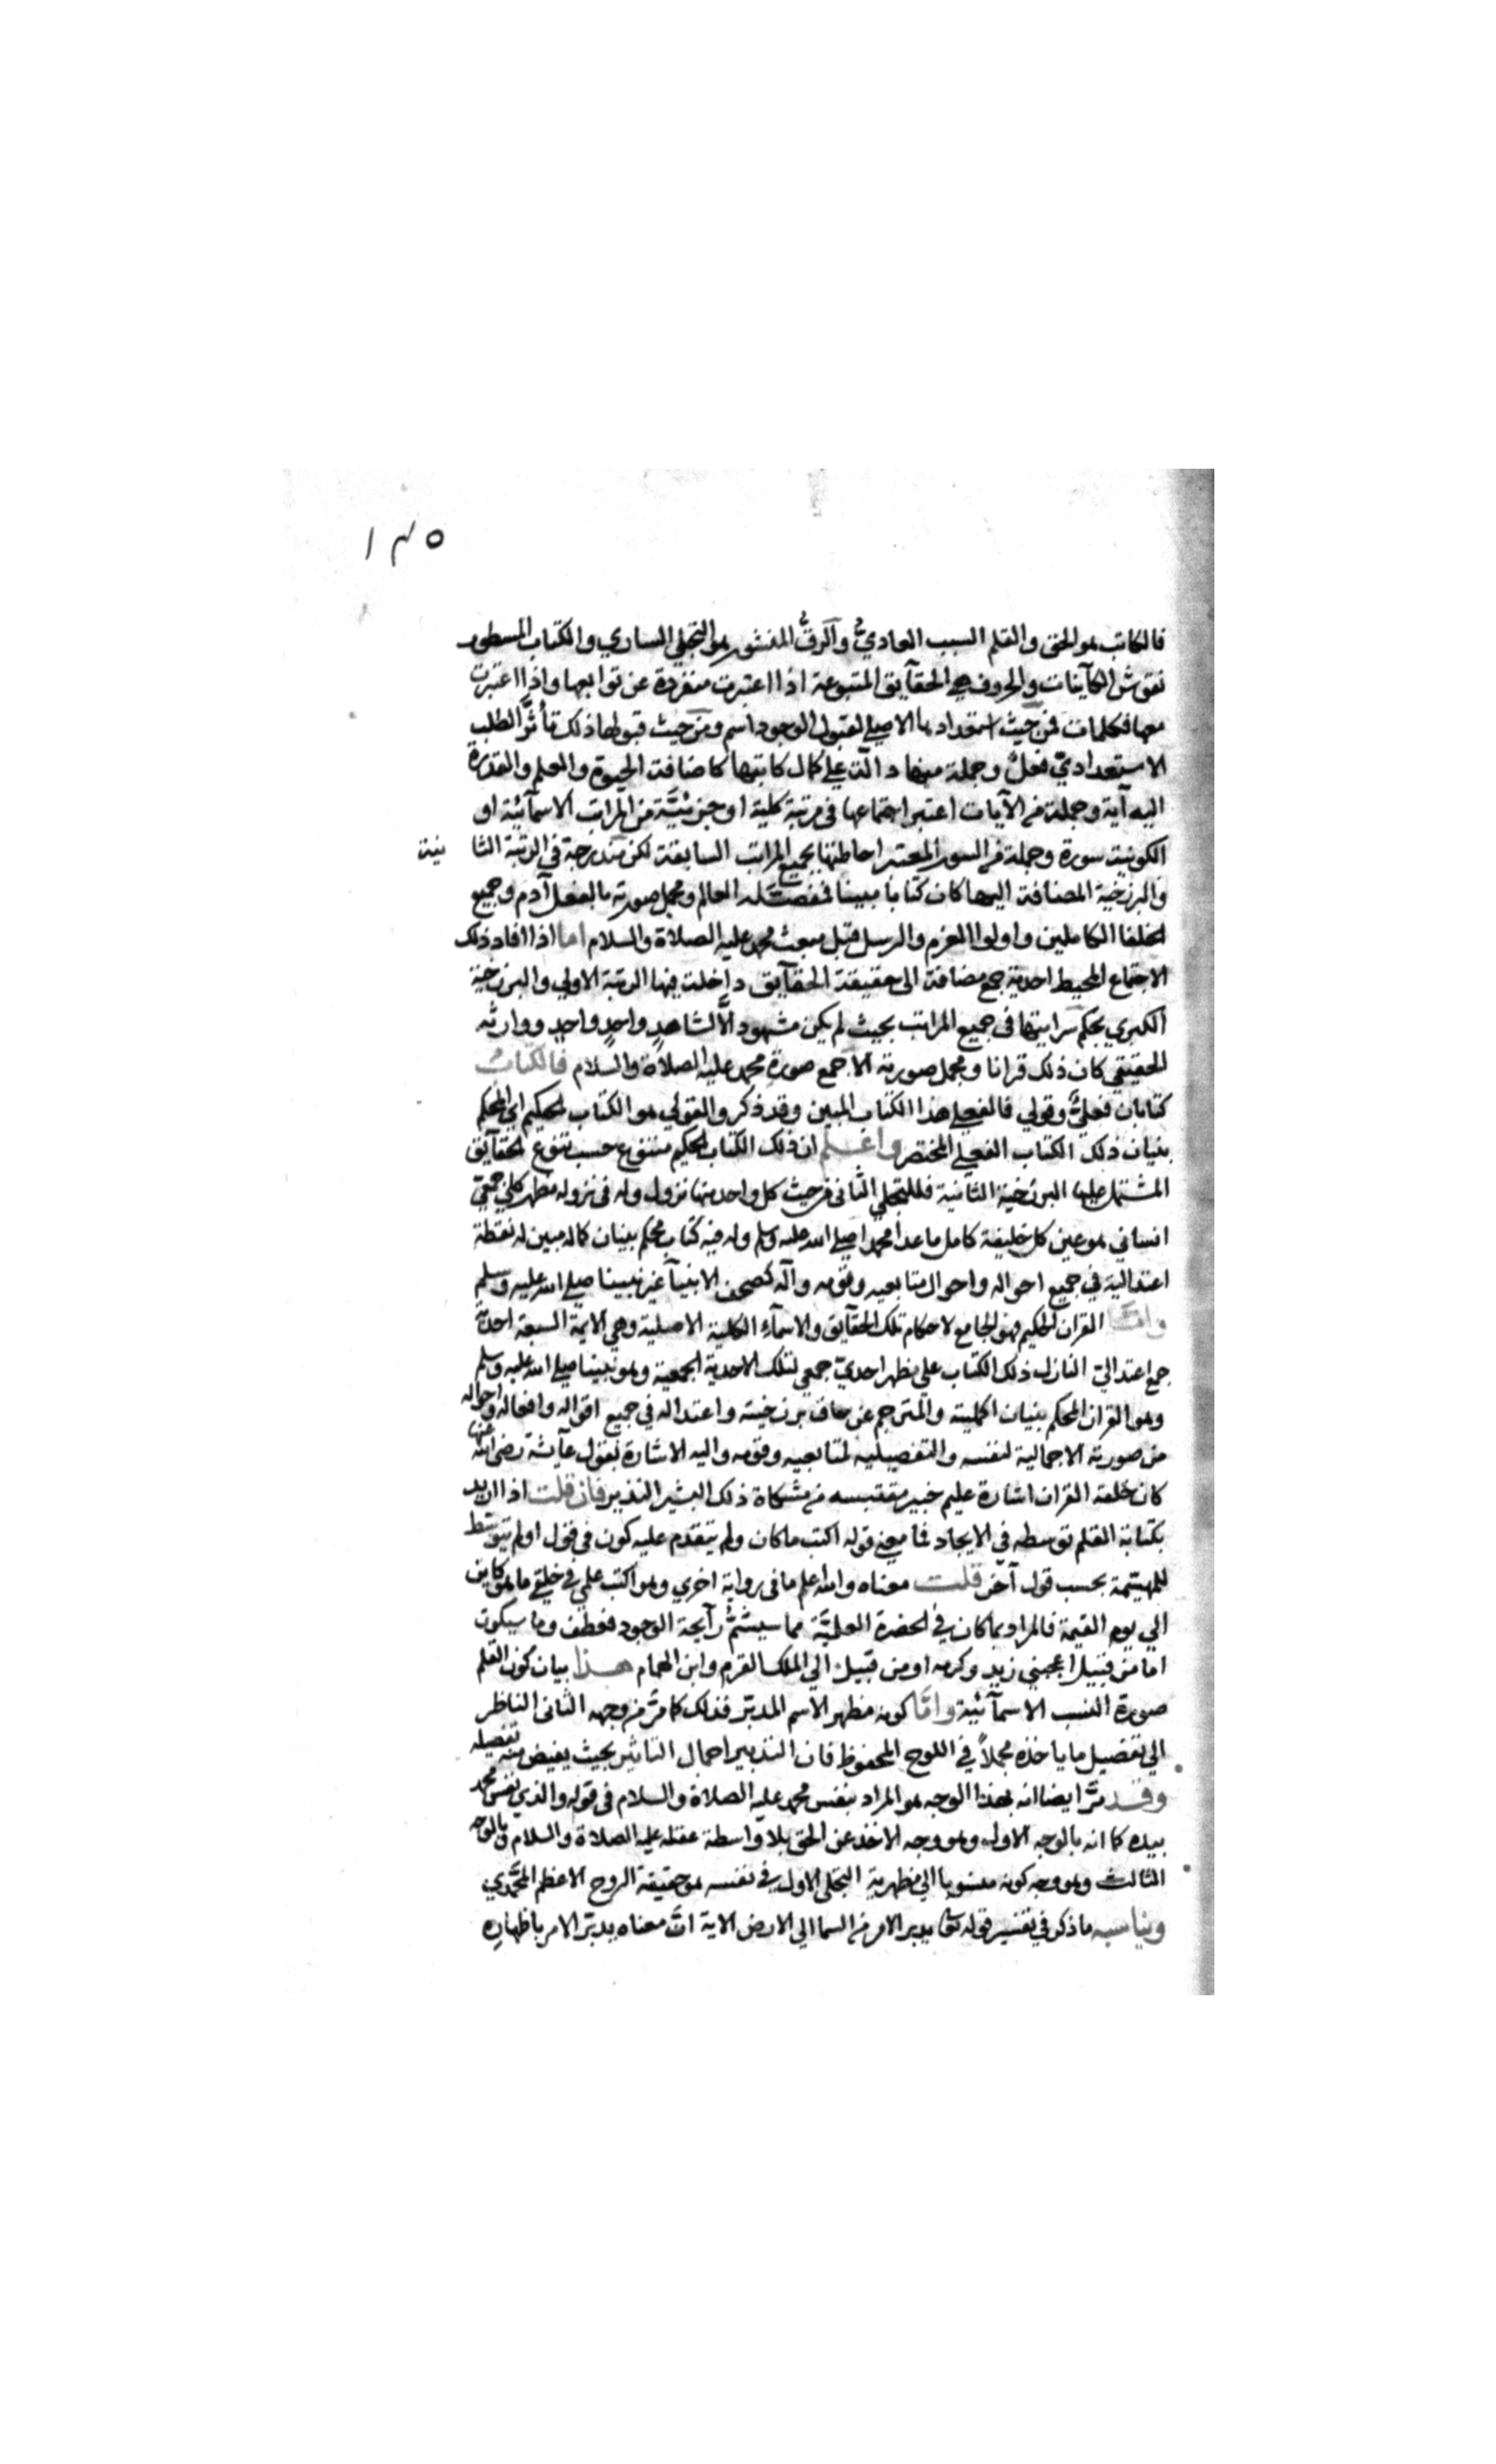 ١٣٥
فالكاتب هو الحق والقلم السبب العاديّ والرقّ المنشور هو التجلي الساري والكتاب المسطور
نقوش الكآينات والحروف هي الحقآيق المتبوعة اذا اعتبرت منفردة عن توابعها واذا اعتبرت
معها فكلمات فمن حيث استعدادها الاصلي لقبول الوجود اسم ومن حيث قبولها ذلك تأثّر الطلب
الاستعداديّ فعلٌ وجملة منها دالّت علي كمال كاتبها كاضافة الحيوة والعلم والقدرة
اليه آية وجملة من الآيات اعتبر اجتماعها في مرتبة كلية او جزئيّة من المراتب الاسمآئية او
الكونية سورة وجملة من السور المعتبر احاطتها بجميع المراتب السابقة لكن مندرجة في الرتبة الثا نية
والبرزخية المضافة اليها كان كتابا مبينا فمفصّله العالم ومجمل صورته بالفعل آدم وجميع
الخلفا الكاملين واولوا العزم والرسل قبل مبعث محمد عليه الصلاة والسلام اما اذا افاد ذلك
الاجتماع المحيط احدية جمع مضافة الى حقيقة الحقآيق داخلت فيها الرتبة الاولي والبرزخية
الكبري بحكم سرايتها في جميع المراتب بحيث لم يكن مشهود الّا لشاهدٍ واحدٍ واحدٍ ووارثه
الحقيقي كان ذلك قرانا ومجمل صورته الاجمع صورة محمد عليه الصلاة والسلام فالكتاب
كتابان فعليٌّ وقولي فالفعلي هذا الكتاب المبين وقد ذكر والقولي هو الكتاب الحكيم اي المحكم
بنيان ذلك الكتاب الفعلي المختصر واعلم ان ذلك الكتاب الحكيم متنوع حسب تنوع الحقآيق
المشتمل عليها البرزخية الثانية فللتجلي الثاني من حيث كل واحد منها نزول وله في نزوله مظهر كلي جمعيّ
انساني هو عين كل خليفة كامل ما عدا محمدا صلي الله عليه وسلم وله فيه كتاب محكم بنيان كماله مبين له نقطة
اعتدالية في جميع احواله واحوال متابعيه وقومه وآله كصحف الانبيآء غير نبينا صلي الله عليه وسلم
وامّا القران الحكيم فهو الجامع لاحكام تلك الحقآيق والاسمآء الكلية الاصلية وهي الايمة السبعة احديّة
جمع اعتداليّ النازل ذلك الكتاب علي مظهر احديّ جمعي لتلك الاحدية الجمعية وهو نبينا صلي الله عليه وسلم
وهو القران المحكم بنيان اكمليته والمترجم عن حاق برزخيته واعتداله في جميع اقواله وافعاله واحواله
من صورته الاجمالية لنفسه والتفصيليه لمتابعيه وقومه واليه الاشارة بقول عآيشة رضي الله عنها
كان خلقه القران اشارة عليم خبير مقتبسه من مشكاة ذلك البشير النذير فان قلت اذا اريد
بكتابة القلم توسطه في الايجاد فما معني قوله اكتب ما كان ولم يتقدم عليه كون في قول اولم يتوسّط
للمهيّمة بحسب قول آخر قلت معناه والله اعلم ما في رواية اخري وهو اكتب علمي في خلقي ما هو كاين
الي يوم القيمة فالمراد بما كان في الحضرة العلميّة مما سيشمّ رآيحة الوجود فعطف وما سيكون
امّا من قبيل اعجبني زيد وكرمه او من قبيل الي الملك القرم وابن الهمام هذا بيان كون القلم
صورة النسب الاسمآئية وامّا كونه مظهر الاسم المدبّر فذلك كما مرّ من وجهه الثاني الناظر
الي تفصيل ما ياخذه مجملاً في اللوح المحفوظ فان التدبير اجمال التاثير بحيث يفيض منه تفصيله
وقد مرّ ايضا انه بهذا الوجه هو المراد بنفس محمد عليه الصلاة والسلام في قوله والذي نفس محمد
بيده كما انه بالوجه الاول وهو وجه الاخذ عن الحق بلا واسطة عقله عليه الصلاة والسلام وبالوجه
الثالث وهو وجه كونه منسوبا الي مظهرية التجلي الاول في نفسه هو حقيقة الروح الاعظم المحمّدي
ويناسبه ما ذكر في تفسير قوله تعالى يدبر الامر من السما الي الارض الاية انّ معناه يدبّر الامر باظهاره